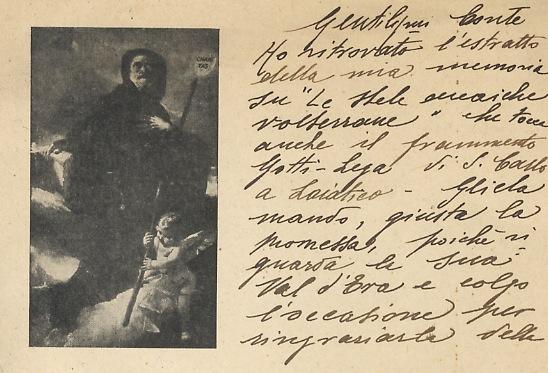 CHARI
TAS
Conte
Ho ritrovato l'estratto
della mia memoria
su "Le stele arcaiche
volterrane" che tocca
anche il frammento
Gotti-Lega di S.
a Laiatico - Gliela
mando, giusta la
promessa, poichè ri
guarda la sua
Val d'Era e colgo
l'occasione per
ringraziarla delle